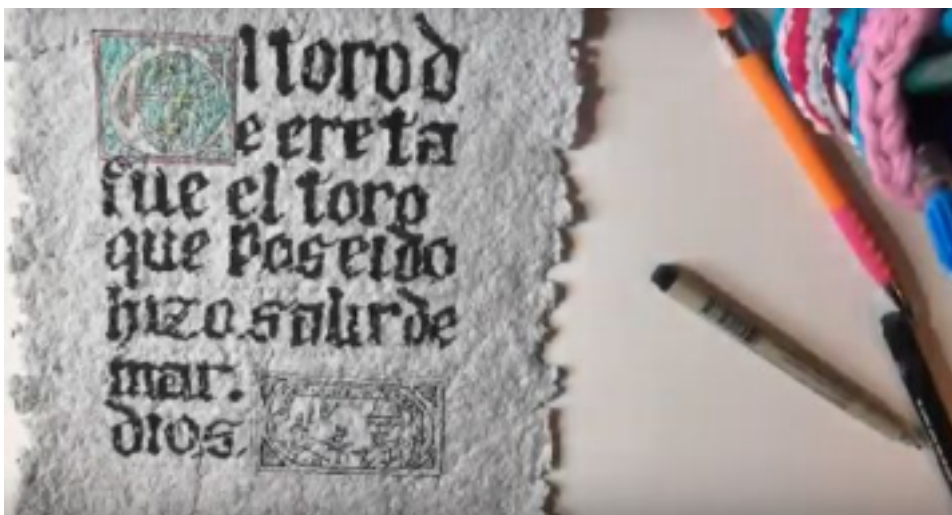 El toro d
e creta
fue el toro
que Poseido
hizo salir de
mar.
dios.